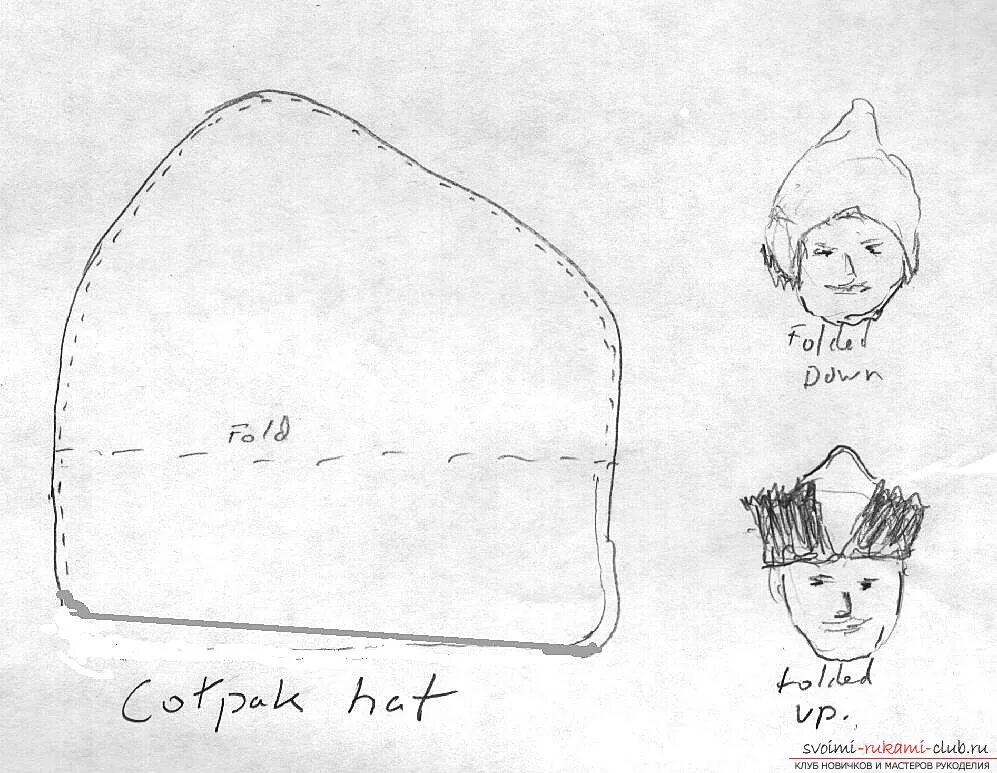 Fold
Cotpak hat
Folded
Down
folded
up.
svoimi-rukami-club.ru
КЛУБ НОВИЧКОВ И МАСТЕРОВ РУКОДЕЛИЯ